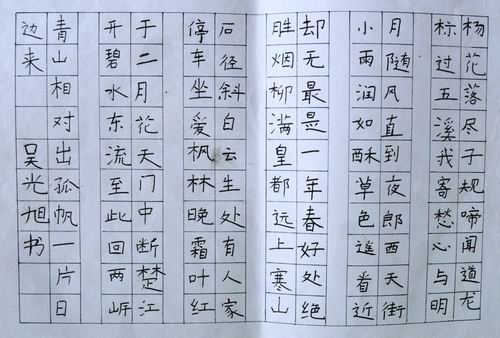 杨花落尽子规啼闻道龙
标过五溪我寄愁心与明
月随风直到夜郎西天街
小雨润如酥草色遥看近
却无最是一年春好处绝
胜烟柳满皇都远上寒山
石径斜白云生处有人家
停车坐爱枫林晚霜叶红
于二月花天门中断楚江
开碧水东流至此回两岸
青山相对出孤帆一片日
边来 吴光旭书